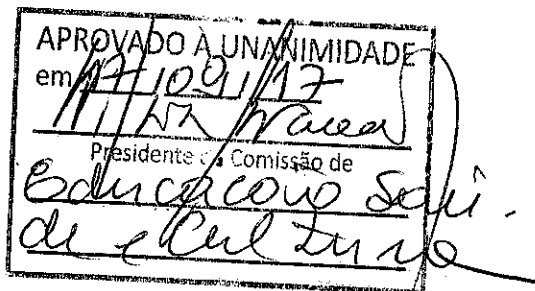 APROVADO À UNANIMIDADE
em 17/09/17
Presidente da Comissão de
Educação Saú-
de e Cultura